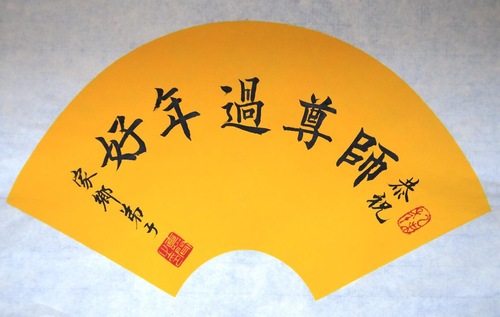 恭祝
師尊過年好
家鄉弟子